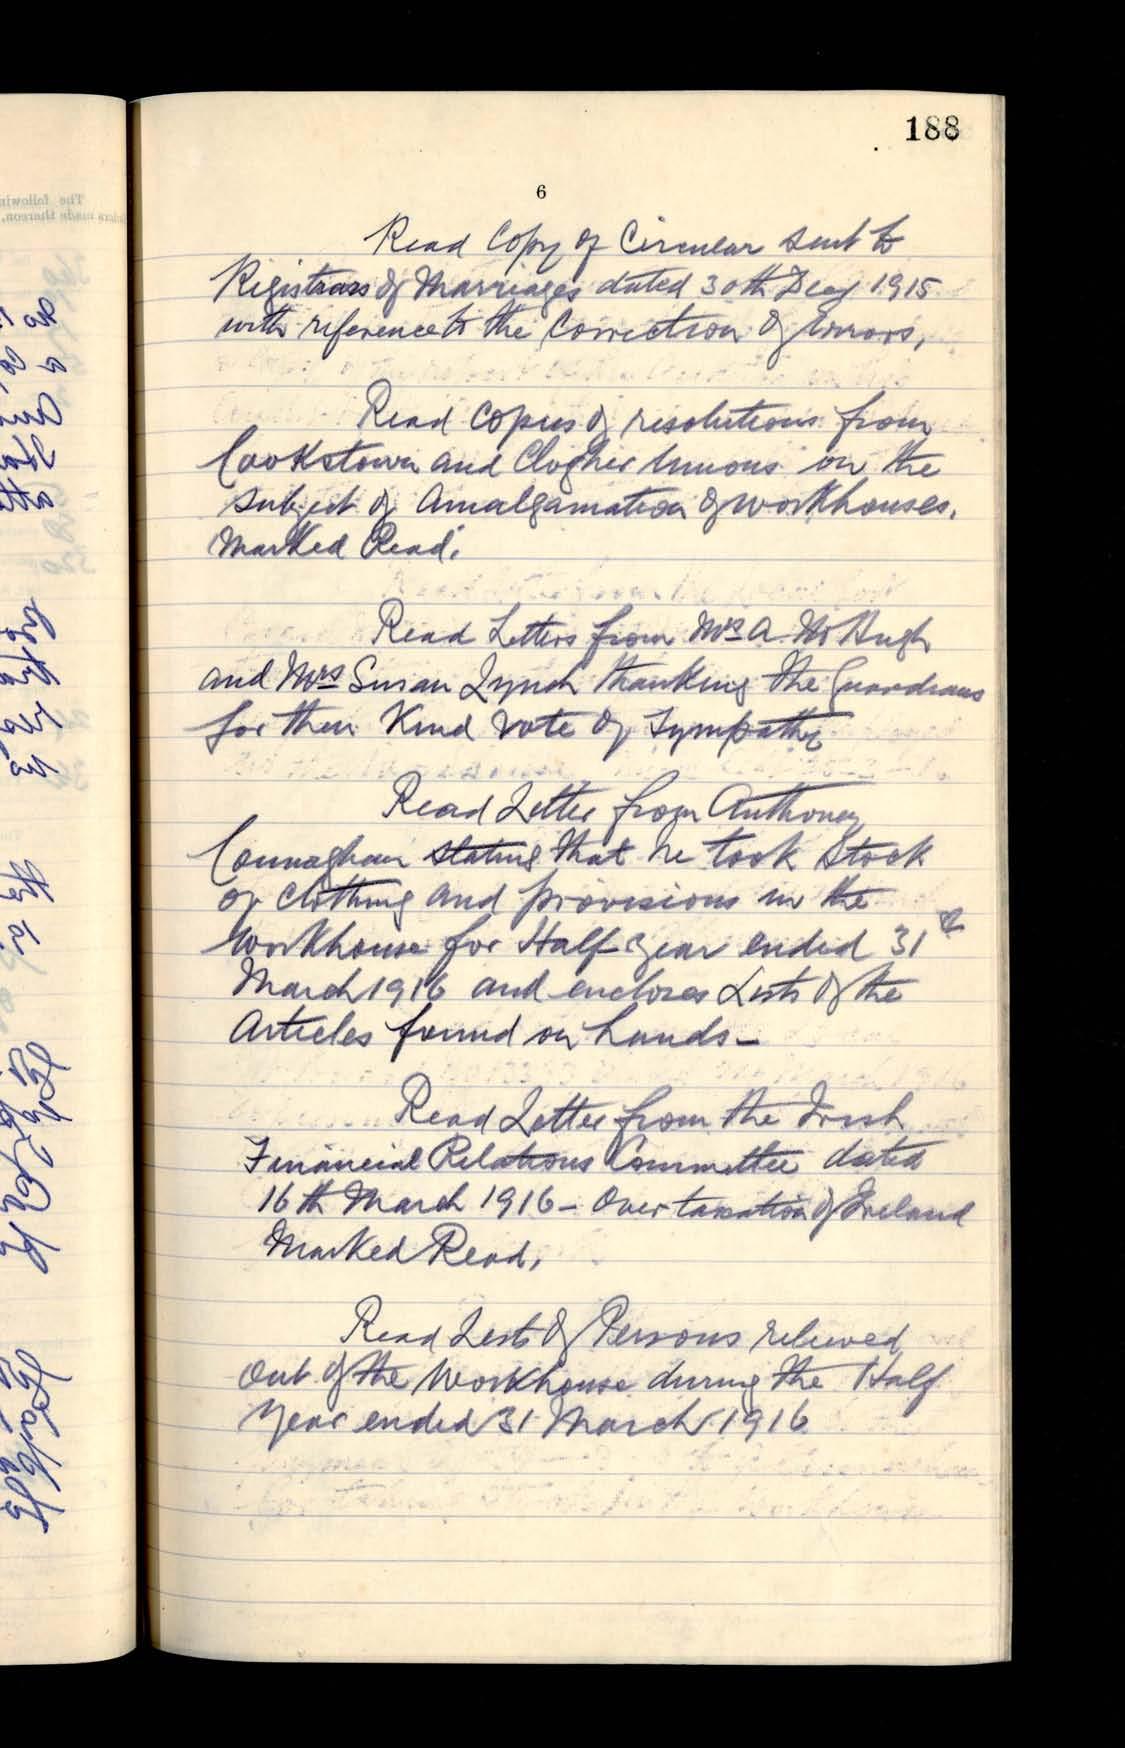 188
6
Read Copy of Circular sent to
Registrars of Marriages dated 30th Decr 1915
with reference to the Correction of Errors,
Read copies of resolutions from
Cookstown and Clogher Unions on the
subject of Amalgamation of Workhouses.
Marked Read.
Read Letters from Mrs A. McHugh
and Mrs Susan Lynch thanking the Guardians
for their Kind Vote of Sympathy
Read Letter from Anthony
Connaghan stating that he took Stock
of clothing and provisions in the
Workhouse for Half year ended 31st
March 1916 and encloses Lists of the
Articles found on hands -
Read Letter from the Irish
Financial Relations Committee dated
16th March 1916 - Over taxation of Ireland
Marked Read,
Read Lists of Persons relieved
out of the Workhouse during the Half
Year ended 31 March 1916